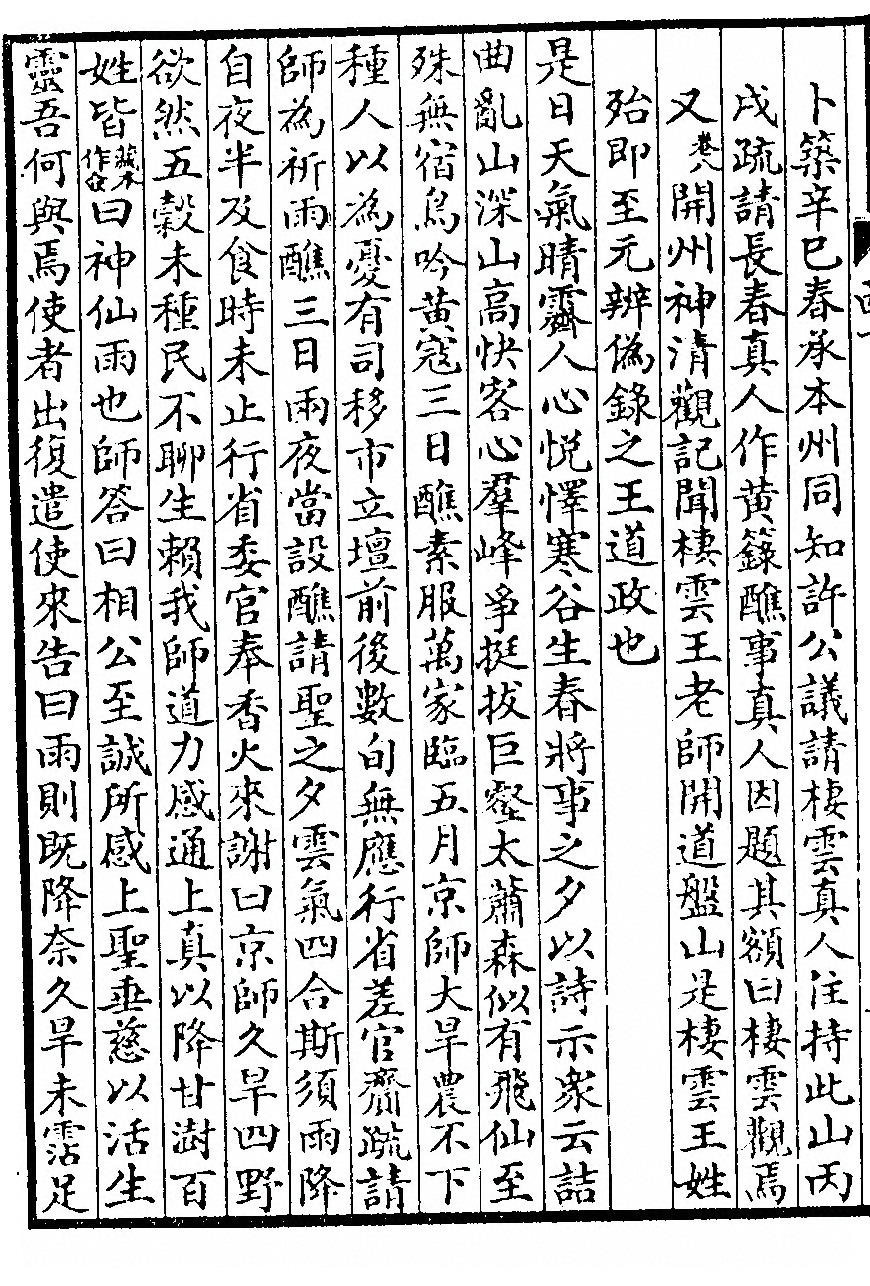 卜築辛巳春承本州同知許公議請棲雲真人住持此山丙
戌疏請長春真人作黃籙醮事真人因題其額曰棲雲觀焉
又卷八開州神清觀記聞棲雲王老師開道盤山是棲雲王姓
殆即至元辨偽錄之王道政也
是日天氣晴霽人心悅懌寒谷生春將事之夕以詩示衆云詰
曲亂山深山高快客心羣峰爭挺拔巨壑太蕭森似有飛仙至
殊無宿鳥吟黃冠三日醮素服萬家臨五月京師大旱農不下
種人以為憂有司移市立壇前後數旬無應行省差官齎疏請
師為祈雨醮三日雨夜當設醮請聖之夕雲氣四合斯須雨降
自夜半及食時未止行省委官奉香火來謝曰京師久旱四野
欲然五穀未種民不聊生賴我師道力感通上真以降甘澍百
姓皆藏本作僉曰神仙雨也師答曰相公至誠所感上聖垂慈以活生
靈吾何與焉使者出復遣使來告曰雨則既降奈久旱未霑足